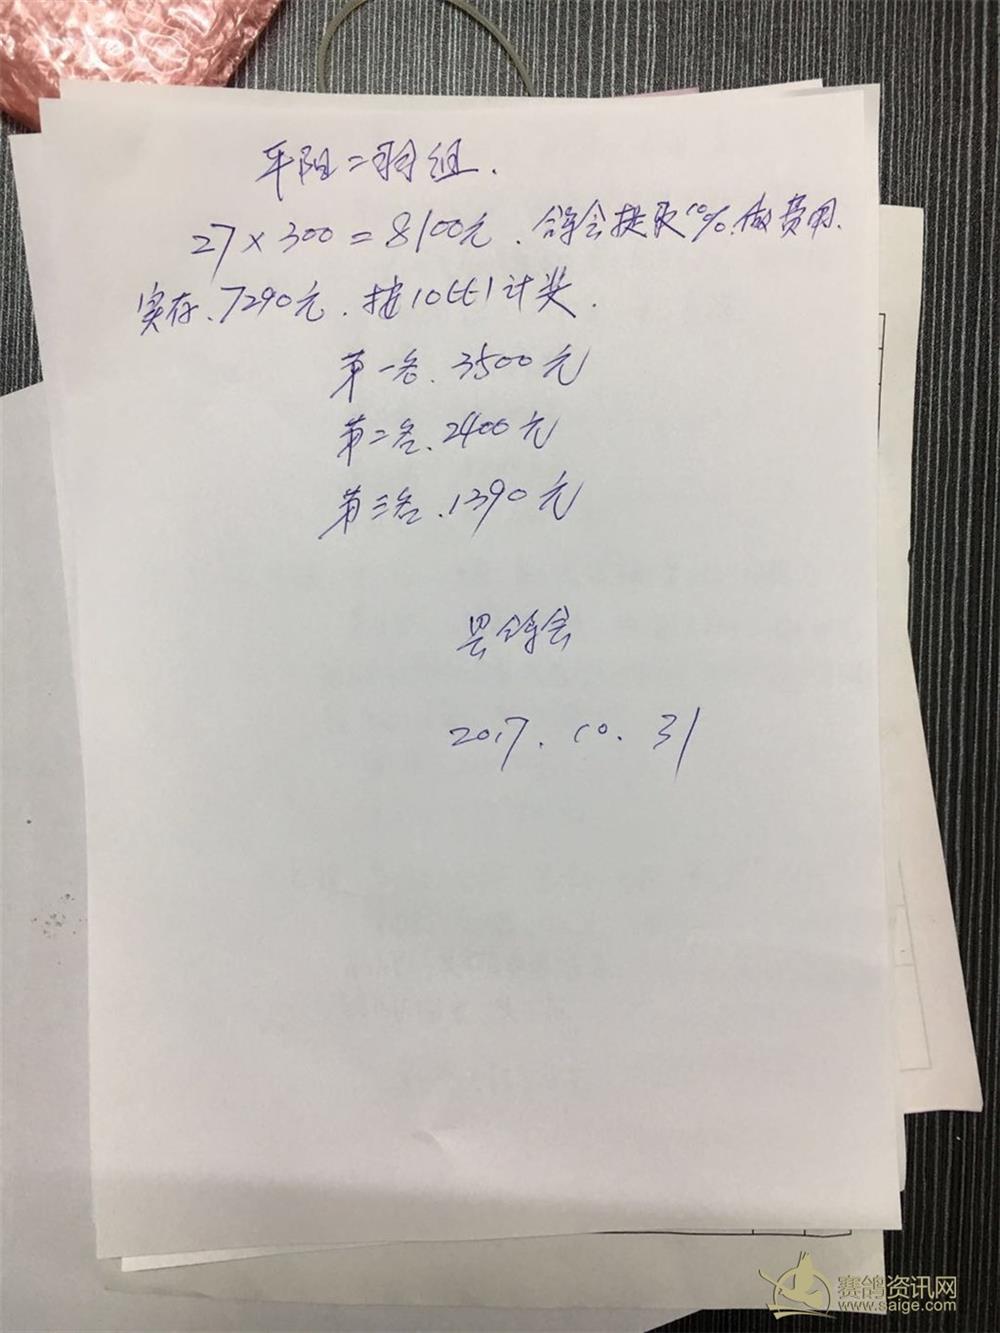 平阳二羽组.
27×300=8100元.鸽会提取10%.做费用.
实存.7290元.按10比1计奖.
第一名.3500元
第二名.2400元
第三名.1390元
县鸽会
2017.10.31
赛鸽资讯网
www.saige.com